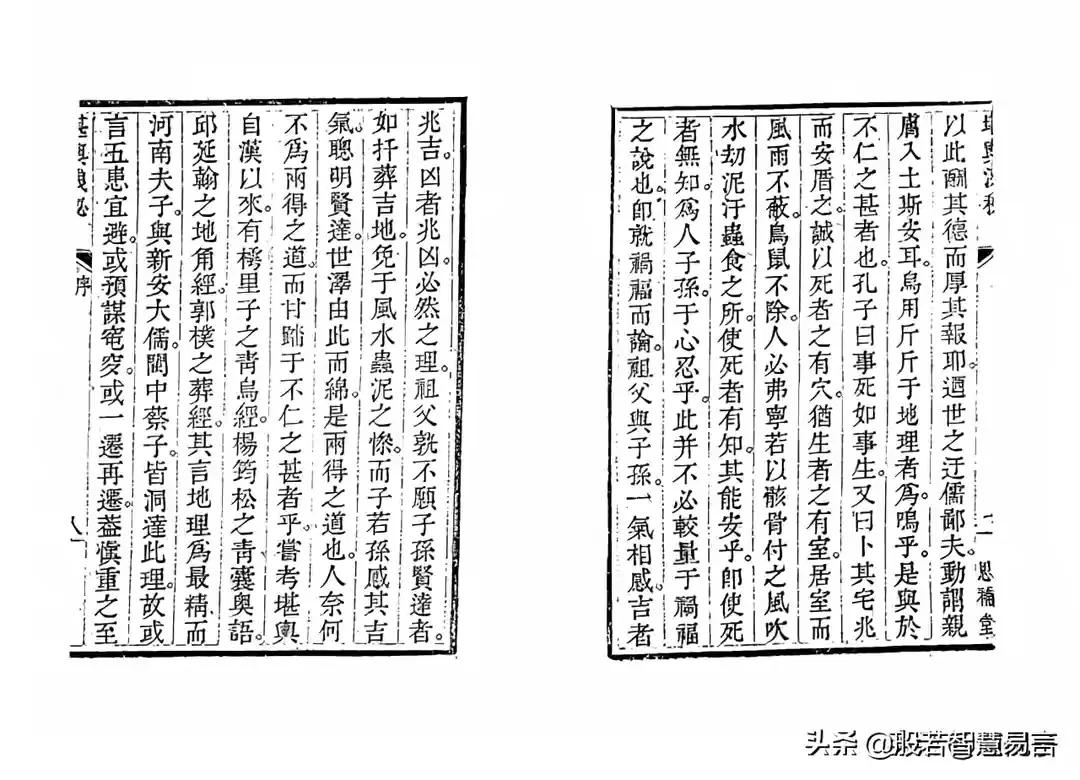 以此酬其德而厚其報耶迺世之迂儒鄙夫動謂親
膚入土斯安耳烏用斤斤于地理者為嗚乎是與於
不仁之甚者也孔子曰事死如事生又曰卜其宅兆
而安厝之誠以死者之有穴猶生者之有室居室而
風雨不蔽鳥鼠不除人必弗寧若以骸骨付之風吹
水刼泥汙蟲食之所使死者有知其能安乎即使死
者無知為人子孫于心忍乎此并不必較量于禍福
之說也即就禍福而論祖父與子孫一氣相感吉者
思補堂
兆吉凶者兆凶必然之理祖父孰不願子孫賢達者
如扦葬吉地免于風水蟲泥之慘而子若孫感其吉
氣聰明賢達世澤由此而綿是兩得之道也人奈何
不為兩得之道而甘蹈于不仁之甚者乎嘗考堪輿
自漢以來有樗里子之青烏經楊筠松之青囊奧語
邱延翰之地角經郭樸之葬經其言地理為最精而
河南夫子與新安大儒閩中蔡子皆洞達此理故或
言五患宜避或預謀窀穸或一遷再遷葢慎重之至
序
頭条 @般若智慧易言